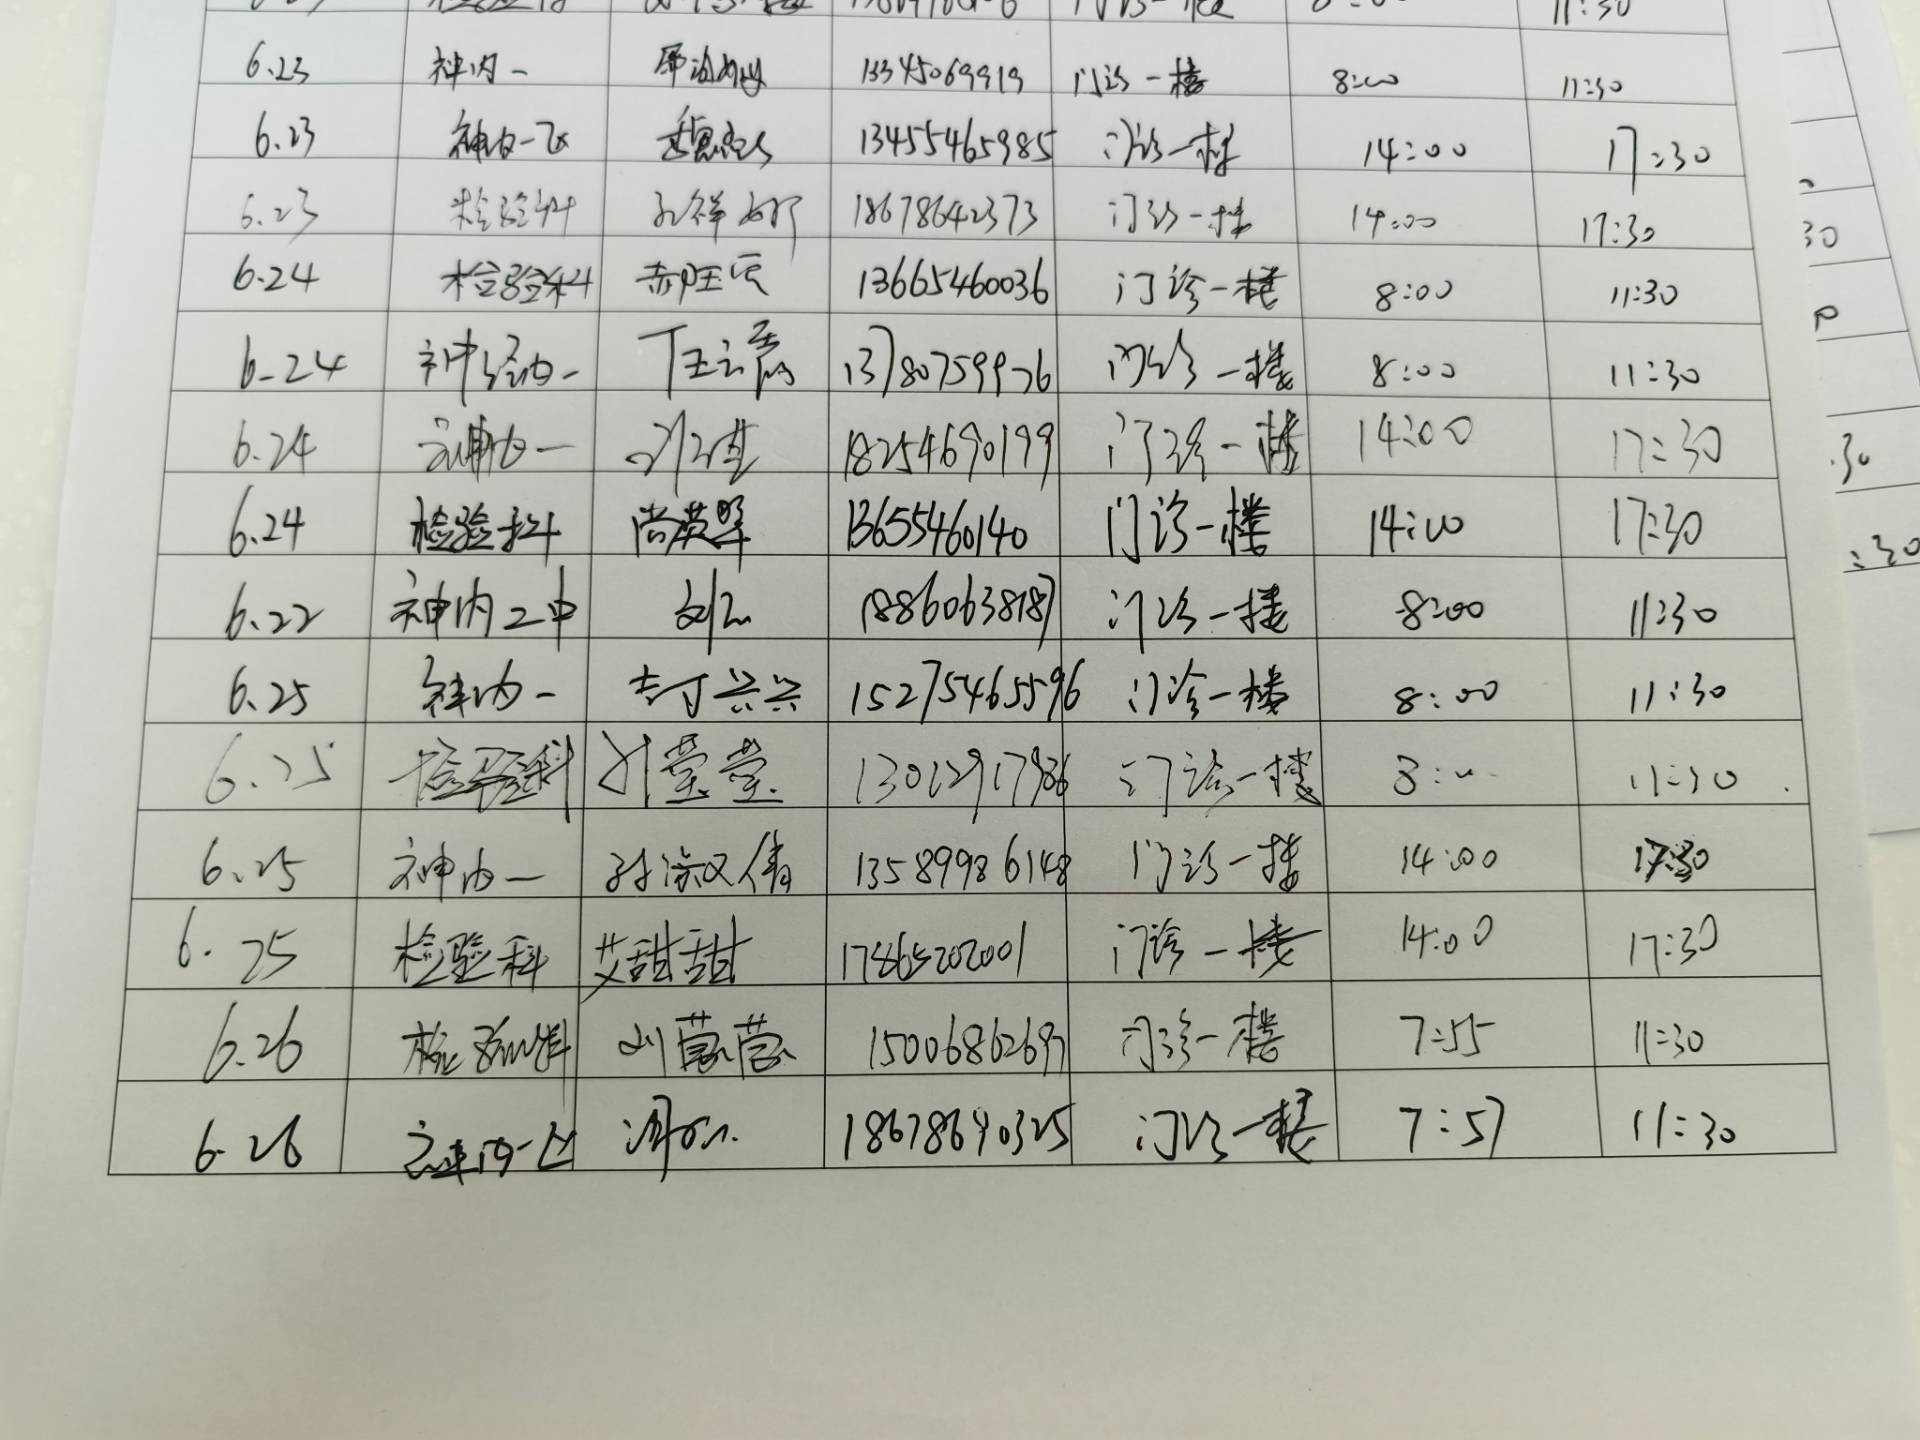 11:30
6.23 神内一 13345069919 门诊一楼 8:00 11:30
6.23 神内一区 13455465985 门诊一楼 14:00 17:30
6.23 检验科 孔祥 18678642373 门诊一楼 14:00 17:30
6.24 检验科 13665460036 门诊一楼 8:00 11:30
6-24 神经内一 门诊一楼 8:00 11:30
6.24 神内一 18254690199 门诊一楼 14:00 17:30
6.24 检验科 尚英 13655460140 门诊一楼 14:00 17:30
6.22 神内二中 18860638187 门诊一楼 8:00 11:30
6.25 神内一 15275465596 门诊一楼 8:00 11:30
6.25 检验科 莹莹 门诊一楼 8:00 11:30
6.25 神内一 13589986148 门诊一楼 14:00 17:30
6.25 检验科 艾甜甜 17865202001 门诊一楼 14:00 17:30
6.26 检验科 15006862697 门诊一楼 7:55 11:30
6.26 神内一区 18678640325 门诊一楼 7:57 11:30
30
.30
:30